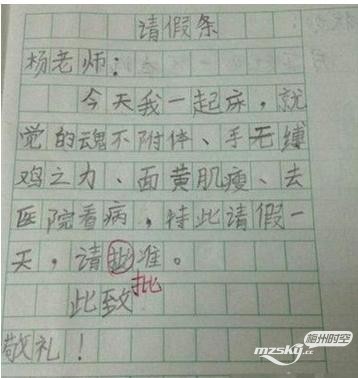 请假条
杨老师：
今天我一起床，就
觉的魂不附体、手无缚
鸡之力、面黄肌瘦、去
医院看病，特此请假一
天，请批准。
批
此致
敬礼！
梅州时空
mzsky.cc